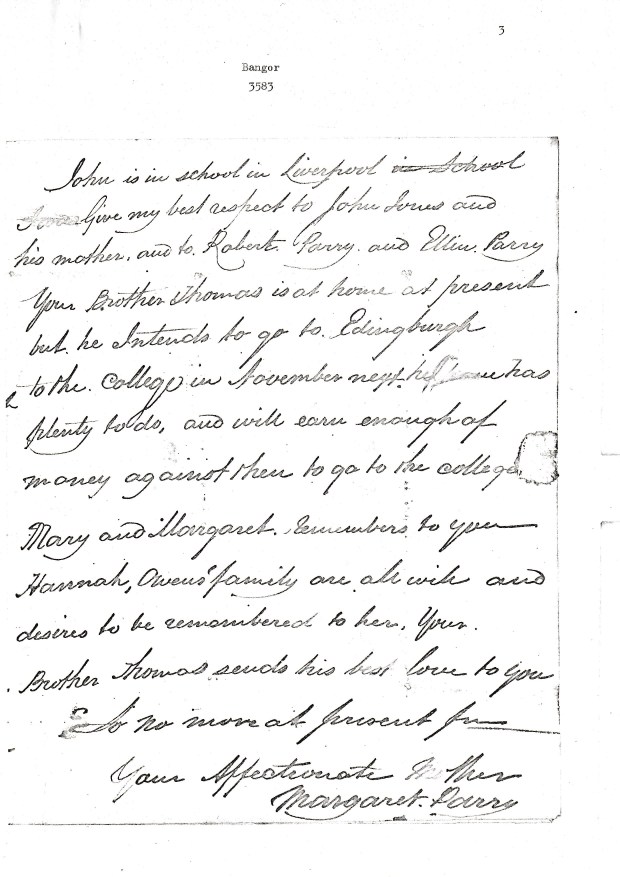 3
Bangor
3583
John is in school in Liverpool in School
Give my best respect to John Jones and
his mother. and to. Robert. Parry. and Ellin. Parry
Your Brother Thomas is at home at present
but. he Intends to go to. Edingburgh
to the. College in November next. he has
plenty to do, and will earn enough of
money against then to go to the college
Mary and Margaret. remembers to you
Hannah, Owens' family are all well and
desires to be remembered to her. Your.
Brother Thomas sends his best love to you
So no more at present from
Your Affectionate Mother
Margaret. Parry